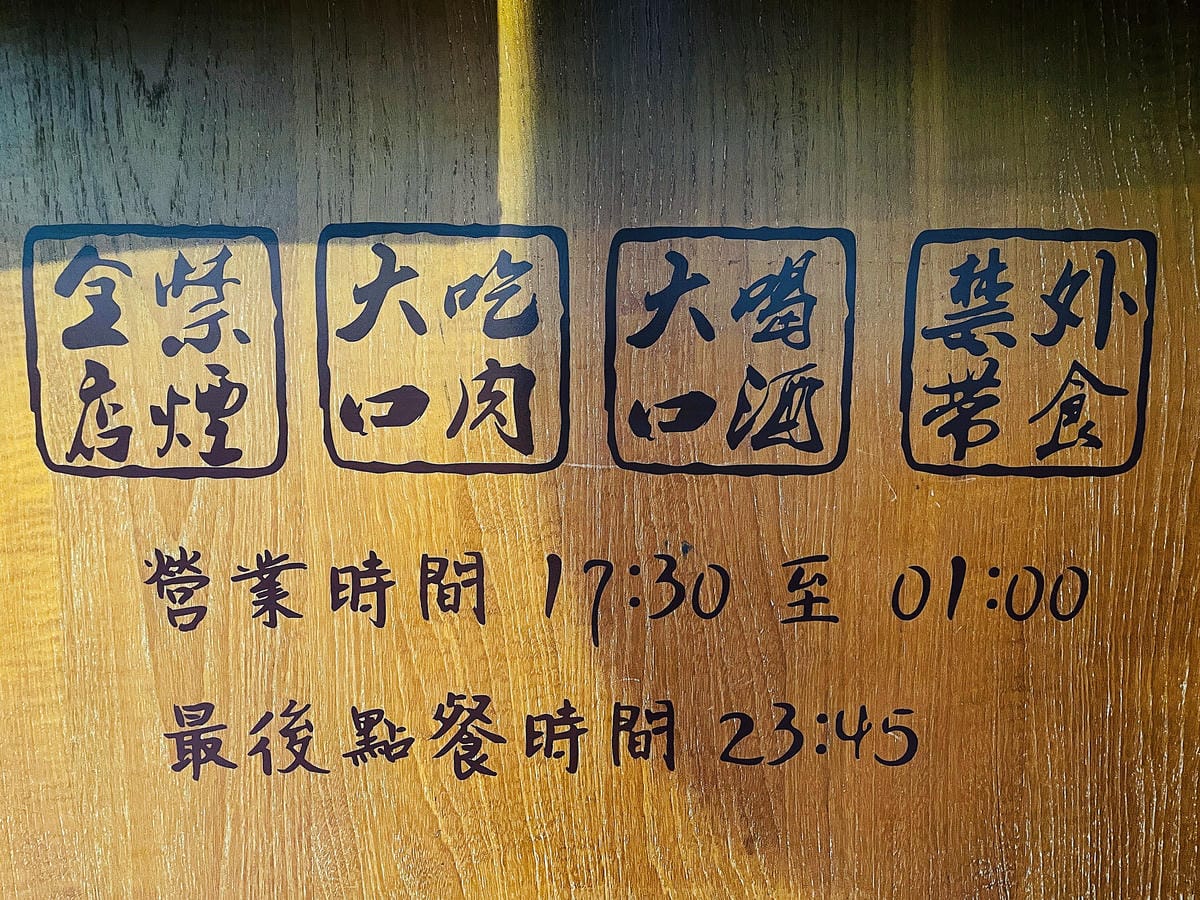 全店
禁煙
大口
吃肉
大口
喝酒
禁帶
外食
營業時間 17:30 至 01:00
最後點餐時間 23:45